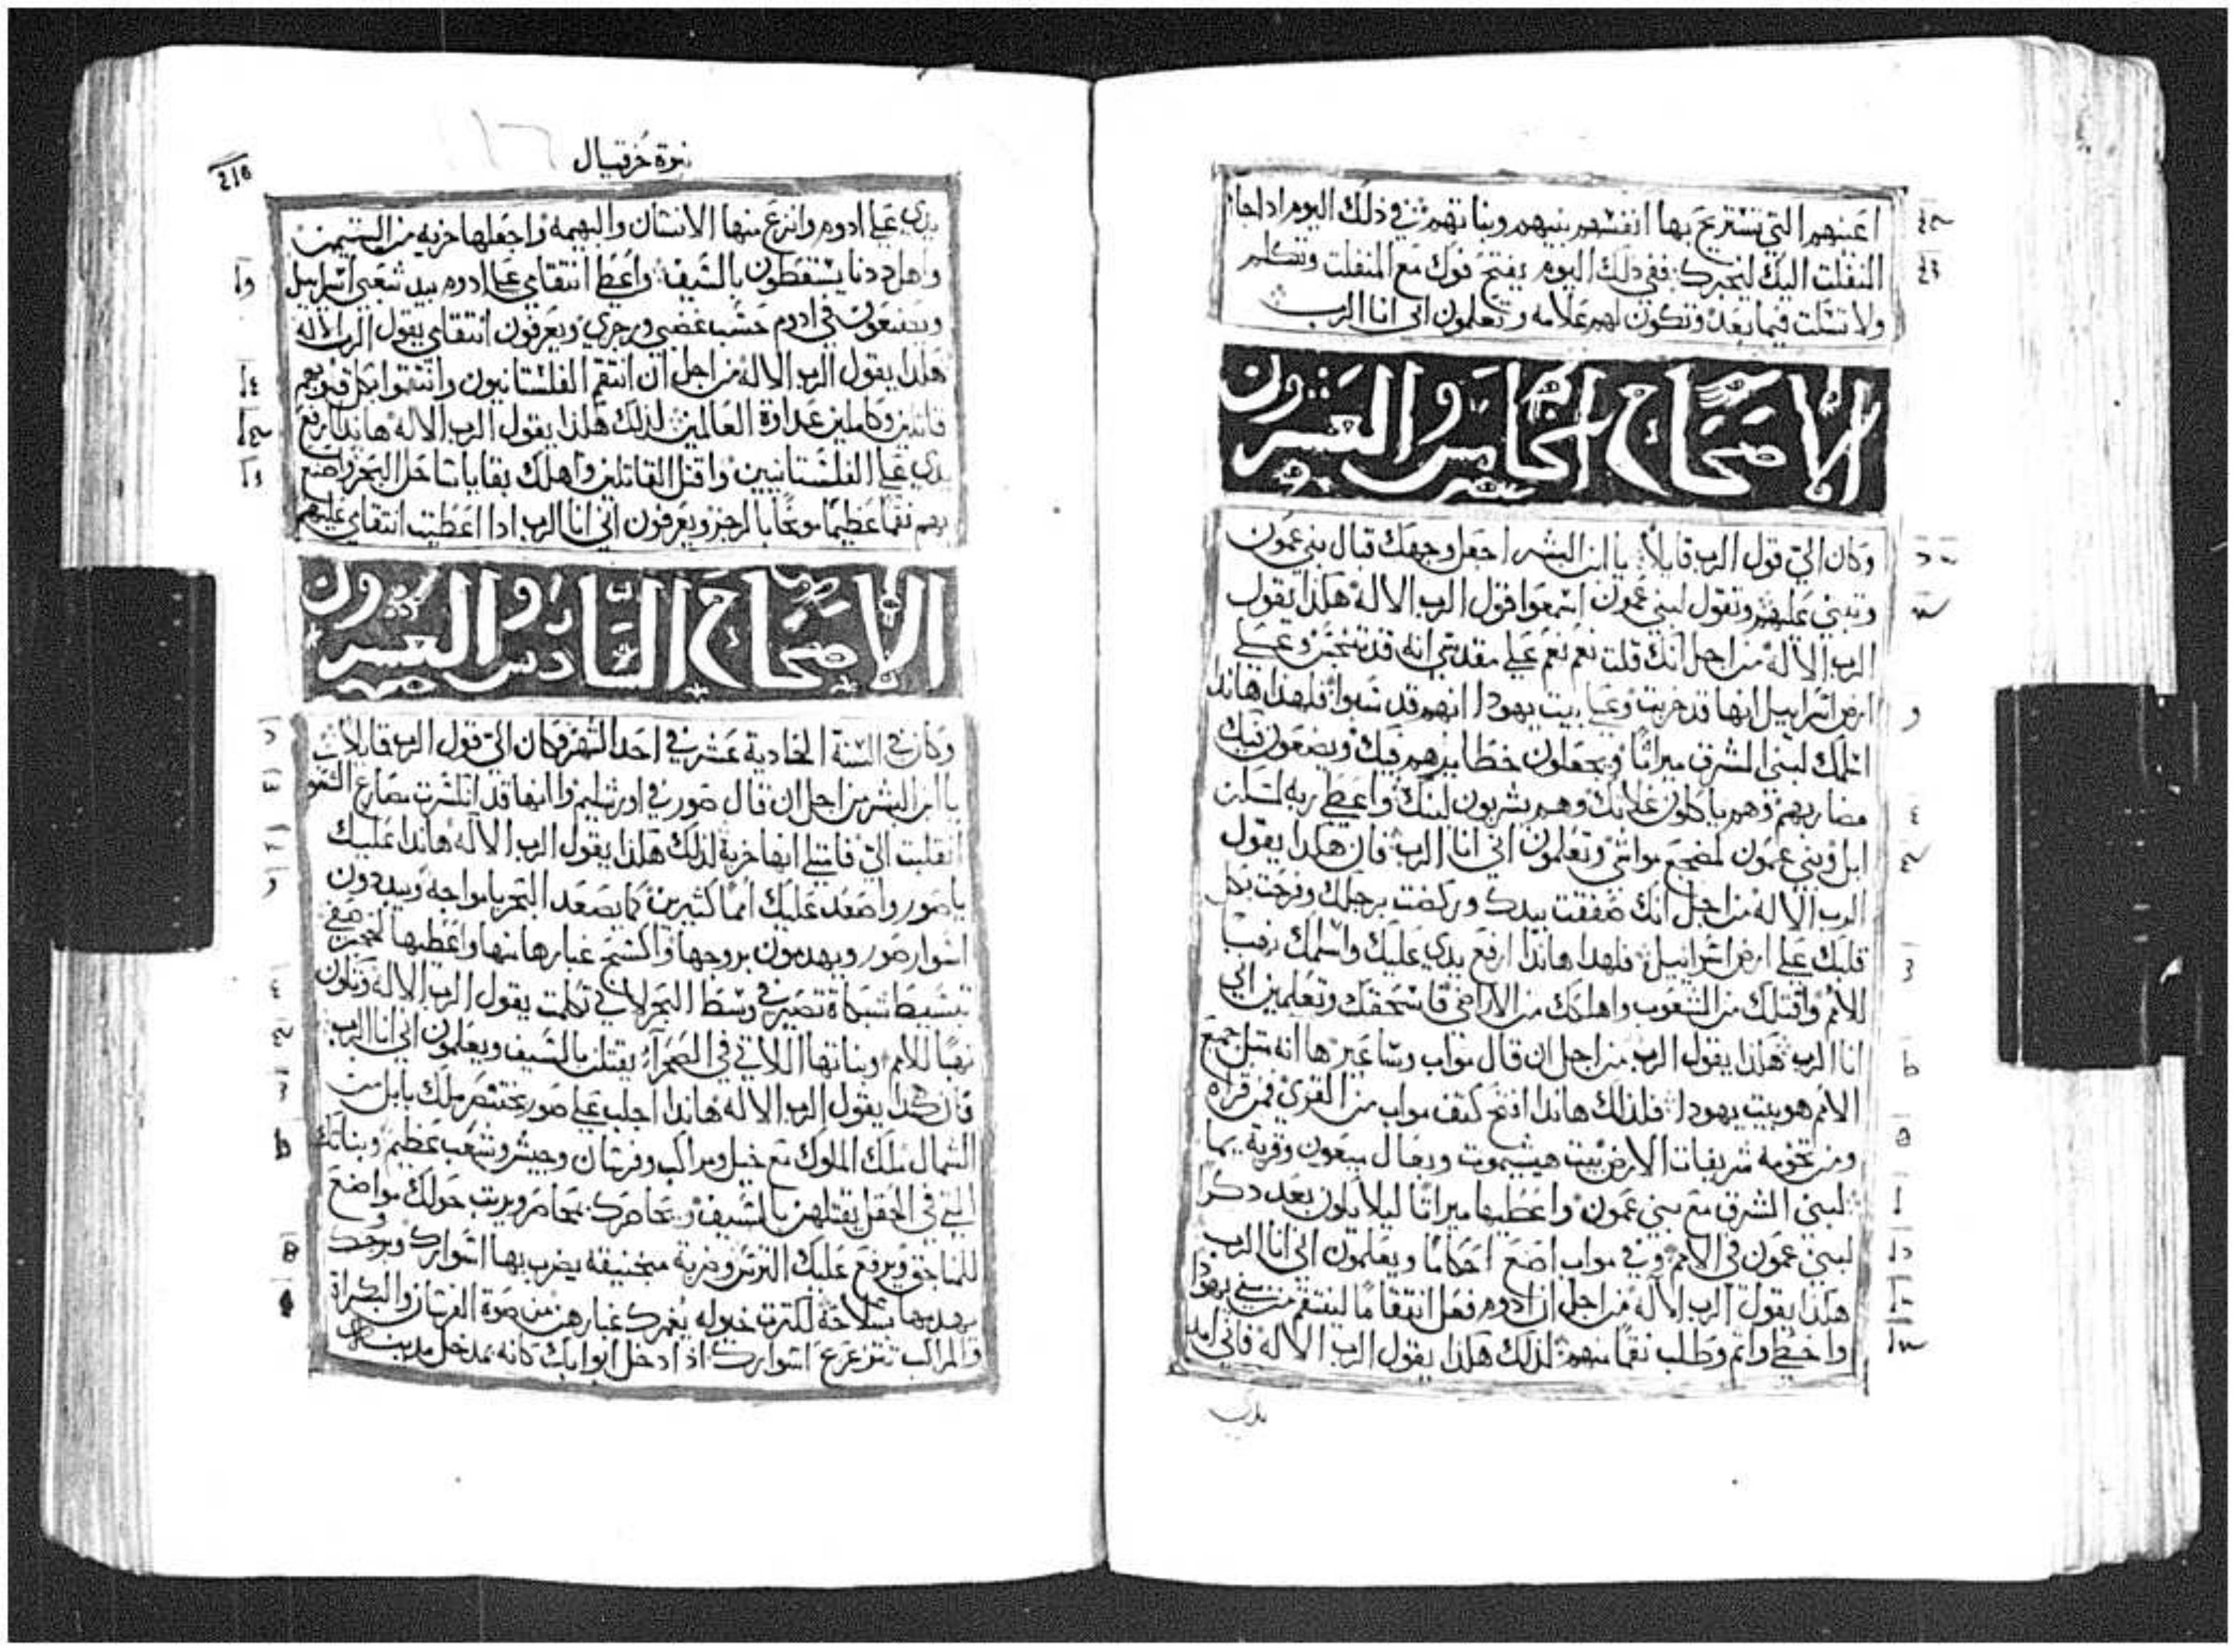 اعينهم التي تستريح بها انفسهم بنيهم وبناتهم في ذلك اليوم اذا جا
المنفلت اليك ليخبرك ففي ذلك اليوم يفتح فوك مع المنفلت وتتكلم
ولا تسكت فيما بعد وتكون لهم علامه وتعلمون اني انا الرب
الاصحاح الخامس والعشرون
وكان الي قول الرب قايلاً يا ابن البشر اجعل وجهك قبال بني عمون
وتنبي عليهم وتقول لبني عمون اسمعوا قول الرب الاله هكذا يقول
الرب الاله من اجل انك قلت نعم نعم علي مقدسي انه قد تنجس وعلي
ارض اسراييل انها قد خربت وعلي بيت يهودا انهم قد سبوا فلهذا هاندا
اسلمك لبني المشرق ميراثا ويجعلون حظايرهم فيك ويضعون فيك
مضاربهم وهم ياكلون غلاتك وهم يشربون لبنك واعطي ربه لمسكن
ابل وبني عمون لمضجع مواشي وتعلمون اني انا الرب فان هكذا يقول
الرب الاله من اجل انك صفقت بيدك وركضت برجلك وفرحت بكل
قلبك علي ارض اسراييل فلهذا هاندا ارفع يدي عليك واسلمك نهبا
للامم واقتلك من الشعوب واهلكك من الاراضي فاسحقك وتعلمين اني
انا الرب هكذا يقول الرب من اجل ان قال مواب وساعير ها انه مثل جميع
الامم هو بيت يهودا فلذلك هاندا افتح كتف مواب من القري فمن قراه
ومن تخومه شريفات الارض بيت هيشيموت وبعال ميعون وقرية يما
لبني الشرق مع بني عمون واعطيها ميراثا ليلا يكون بعد ذكرا
لبني عمون في الامم وفي مواب اصنع احكاما ويعلمون اني انا الرب
هكذا يقول الرب الاله من اجل ان ادوم فعل انتقاما لينتقم من بني يهودا
واخطي واثم وطلب نقما منهم لذلك هكذا يقول الرب الاله فاني امد
يدي
نبوة حزقيال
يدي علي ادوم وانزع منها الانسان والبهيمه واجعلها خربه من التيمن
واهل ددنا يسقطون بالسيف واعطي انتقامي علي ادوم بيد شعبي اسراييل
ويصنعون في ادوم حسب غضبي ورجزي ويعرفون انتقامي يقول الرب الاله
هكذا يقول الرب الاله من اجل ان انتقم الفلستانيون وانتقموا بكل قلوبهم
قاتلين وكاملين عداوة العالمين لذلك هكذا يقول الرب الاله هاندا ارفع
يدي علي الفلستانيين واقتل القاتلين واهلك بقايا ساحل البحر واصنع
بهم نقما عظيما موبخا بالرجز ويعرفون اني انا الرب اذا اعطيت انتقامي عليهم
الاصحاح السادس والعشرون
وكان في السنة الحادية عشر في احد الشهر وكان الي قول الرب قايلا
يا ابن البشر من اجل ان قال صور في اورشليم واانها قد انكسرت مصارع الشعوب
انقلبت الي فامتلي انها خربة لذلك هكذا يقول الرب الاله هاندا عليك
يا صور واصعد عليك امما كثيرين كما يصعد البحر بامواجه ويبددون
اسوار صور ويهدمون بروجها واكسح غبارها منها واعطيها لحجر صفي
تبسيط شبكاة تصير في وسط البحر لاني تكلمت يقول الرب الاله وتكون
نهبا للامم وبناتها اللاتي في الصحرآء يقتلن بالسيف ويعلمون اني انا الرب
فان هكذا يقول الرب الاله هاندا اجلب علي صور بختنصر ملك بابل من
الشمال ملك الملوك مع خيل ومراكب وفرسان وجيش وشعب عظيم وبناتك
التي في الحقل يقتلهن بالسيف ويحاصرك بمحاصر ويرتب حولك مواضع
للمناجنق ويرفع عليك الترس وضربة منجنيقه يضرب بها اسوارك وبروجك
يهدمها بسلاحه لكثرت خيوله يغمرك غبارهن من صوة الفرسان والبكراة
والمراكب تتزعزع اسوارك اذا دخل ابوابك كانه بمدخل مدينة